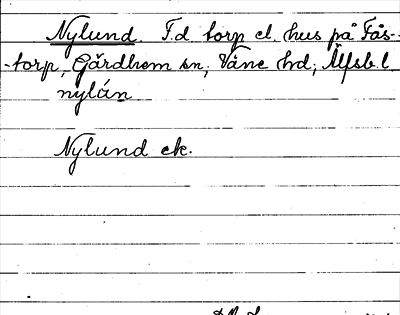 Nylund. F.d torp el. hus på Fås-
-torp, Gärdhem sn, Väne hd, Älfsb. l.
nylån
Nylund ek.